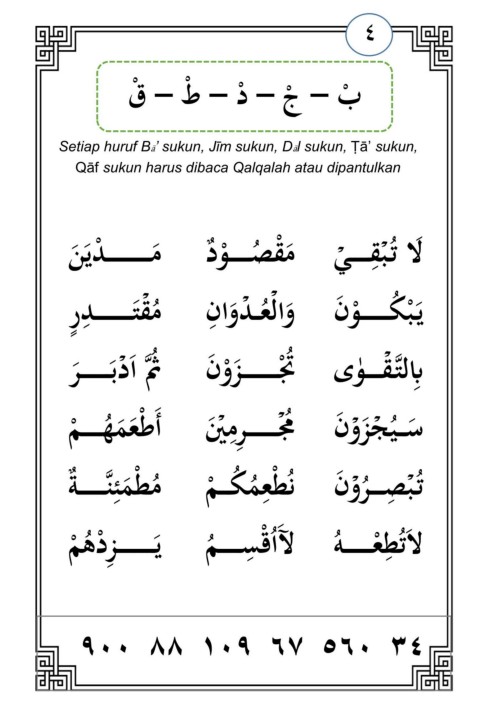 ٤
بْ – جْ – دْ – طْ – قْ
Setiap huruf Bā’ sukun, Jīm sukun, Dāl sukun, Ṭā’ sukun,
Qāf sukun harus dibaca Qalqalah atau dipantulkan
لَا تُبْقِـــيْ مَقْصُـــوْدٌ مَـــــدْيَنَ
يَبْكُـــوْنَ وَالْعُـدْوَانِ مُقْتَـــدِرٍ
بِالتَّقْـــوٰى تُجْـــزَوْنَ ثُمَّ اَدْبَـــرَ
سَـيُجْزَوْنَ مُجْـــرِمِيْنَ أَطْعَمَهُـــمْ
تُبْصِـرُوْنَ نُطْعِمُكُـــمْ مُطْمَئِنَّـــةٌ
لَاتُطِعْـــهُ لَآاُقْسِـــمُ يَـــزِدْهُمْ
٣٤ ٥٦٠ ٦٧ ١٠٩ ٨٨ ٩٠٠